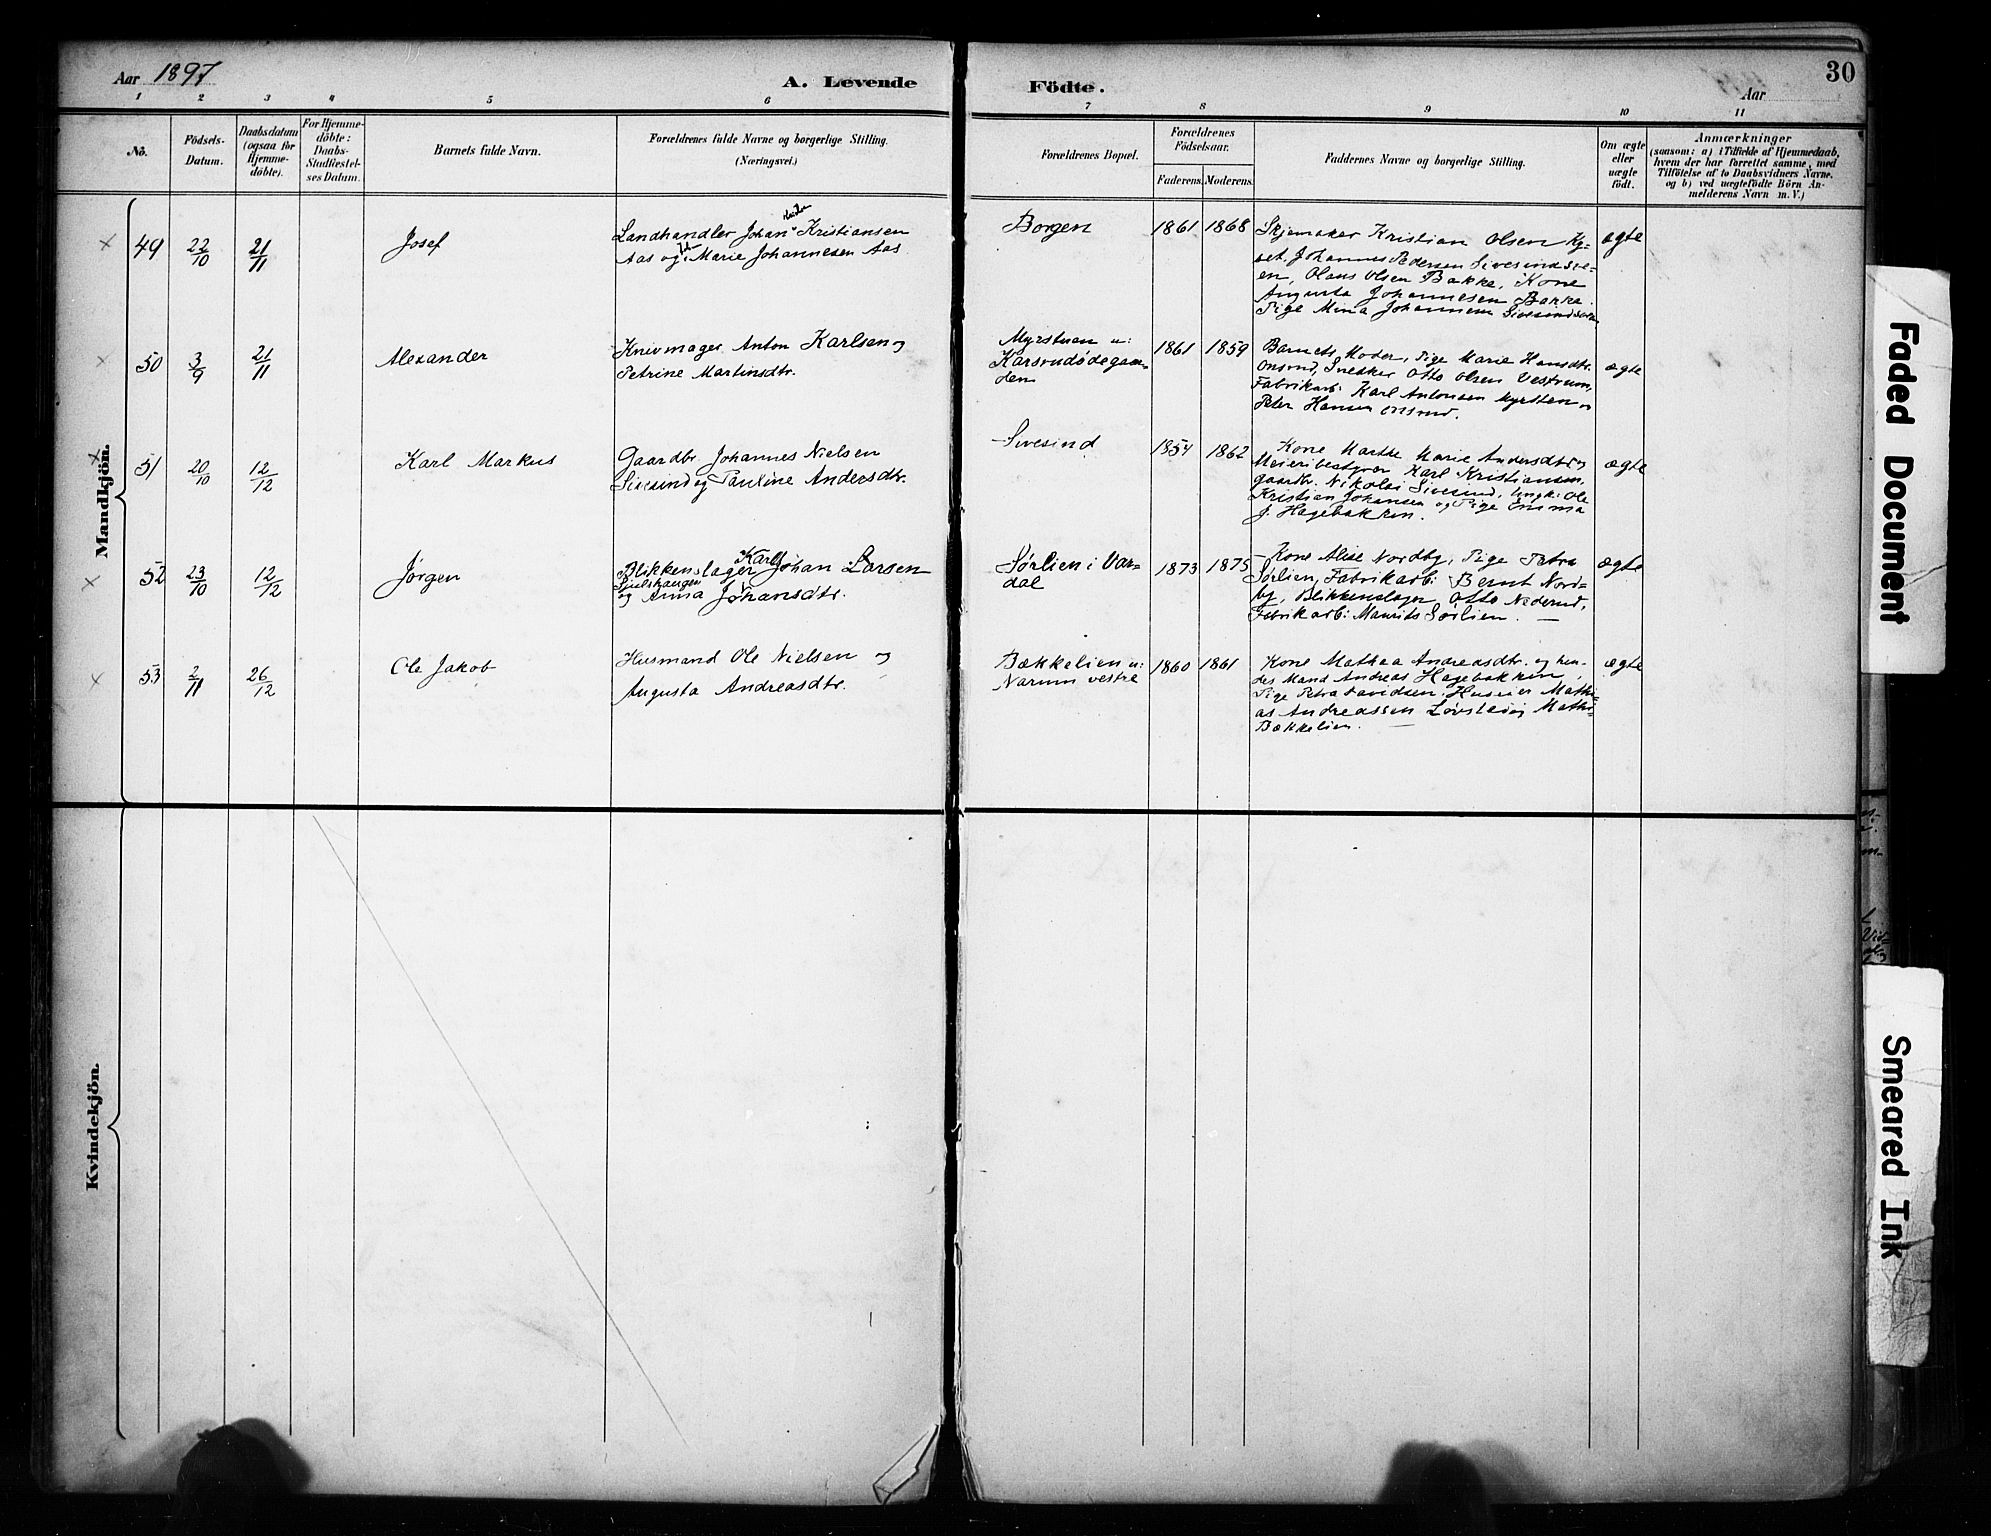 Aar 1897
A. Levende
Födte.
Aar
30
1 2 3 4 5 6 7 8 9 10 11
No.
Födsels-
Datum.
Daabsdatum
(ogsaa for
Hjemme-
döbte).
For Hjemme-
döbte:
Daabs-
Stadfæstel-
ses Datum.
Barnets fulde Navn.
Forældrenes fulde Navne og borgerlige Stilling.
(Næringsvei.)
Forældrenes Bopæl.
Forældrenes
Födselsaar.
Faderens. Moderens.
Faddernes Navne og borgerlige Stilling.
Om ægte
eller
uægte
födt.
Anmærkninger
(saasom: a) i Tilfælde af Hjemmedaab,
hvem der har forrettet samme, med
Tilföielse af to Daabsvidners Navne.
og b) ved uægtefödte Börn An-
melderens Navn m. V.)
Mandkjön.
49 22/10 21/11 Josef
Landhandler Johan Kristiansen
Aas og Marie Johannesen Aas
Borgen 1861 1868
Skjomaker Kristian Olsen Ky-
set, Johannes Pedersen Sivesindsve-
en, Olaus Olsen Bakke, Kone
Augusta Johannesen Bakke.
Pige Mina Johannesen Sivesindsveen
ægte
50 3/9 21/11 Alexander
Knivmager Anton Karlsen og
Petrine Martinsdtr.
Myrstuen u:
Karsrudødegaar-
den
1861 1859
Barnets Moder, Pige Marie Hansdtr.
Onsrud, Snekker Otto Olsen Vestrum,
Fabrikarb: Karl Antonsen Myrsten og
Peter Hansen Onsrud.
ægte
51 20/10 12/12 Karl Markus
Gaardbr. Johannes Nielsen
Sivesind og Pauline Andersdtr.
Sivesind 1854 1862
Kone Marthe Marie Andersdtr. og
Meieribestyrer Karl Kristiansen,
Gaardbr. Nikolai Sivesind, Ungk: Ole
Kristian Johansen og Pige Emma
J. Hagebakken.
ægte
52 23/10 12/12 Jørgen
Blikkenslager Karl Johan Larsen
og Anna Johansdtr.
Sørlien i Var-
dal
1873 1875
Kone Alise Nordby, Pige Petra
Sørlien, Fabrikarb: Bernt Nord-
by, Blikkenslager Otto Nederud,
Fabrikarb: Maurits Sørlien.
ægte
53 2/11 26/12 Ole Jakob
Husmand Ole Nielsen og
Augusta Andreasdtr.
Bækkelien u:
Narum vestre
1860 1861
Kone Mathea Andreasdtr. og hen-
des Mand Andreas Hagebakken,
Pige Petra Davidsen. Huseier Mathi-
as Andreassen
Bækkelien.
ægte
Kvindekjön.
Faded Document
Smeared Ink